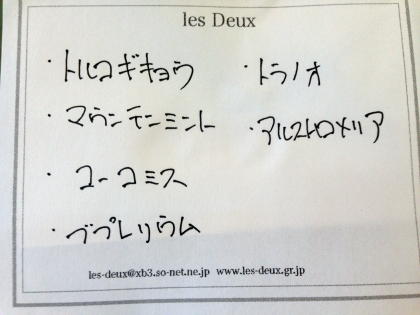 les Deux
・トルコギキョウ
・マウンテンミント
・ユーコミス
・ブプレリウム
・トラノオ
・アルストロメリア
les-deux@xb3.so-net.ne.jp www.les-deux.gr.jp